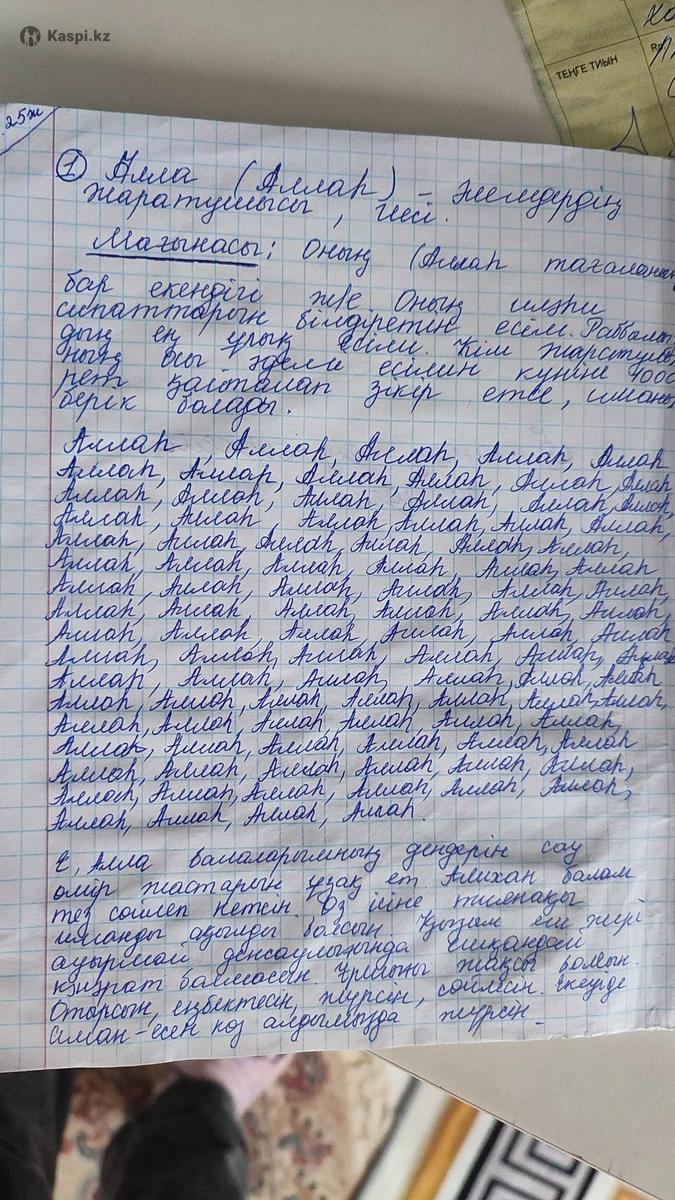 Kaspi.kz
ТЕҢГЕ ТИЫН
25ж
① Алла (Аллаһ) – Әлемдердің
жаратушысы, Иесі.
Мағынасы: Оның (Аллаһ тағаланың
бар екендігі және Оның илаһи
сипаттарын білдіретін есім. Раббымыз
дың ең ұлық есімі. Кім жаратушы
ның осы әдемі есімін күніне 1000
рет қайталап зікір етсе, иманы
берік болады.
Аллаһ, Аллаһ, Аллаһ, Аллаһ, Аллаһ
Аллаһ, Аллаһ, Аллаһ, Аллаһ, Аллаһ, Аллаһ
Аллаһ, Аллаһ, Аллаһ, Аллаһ, Аллаһ, Аллаһ,
Аллаһ, Аллаһ, Аллаһ, Аллаһ, Аллаһ, Аллаһ,
Аллаһ, Аллаһ, Аллаһ, Аллаһ, Аллаһ, Аллаһ,
Аллаһ, Аллаһ, Аллаһ, Аллаһ, Аллаһ, Аллаһ
Аллаһ, Аллаһ, Аллаһ, Аллаһ, Аллаһ, Аллаһ,
Аллаһ, Аллаһ, Аллаһ, Аллаһ, Аллаһ, Аллаһ,
Аллаһ, Аллаһ, Аллаһ, Аллаһ, Аллаһ, Аллаһ
Аллаһ, Аллаһ, Аллаһ, Аллаһ, Аллаһ, Аллаһ
Аллаһ, Аллаһ, Аллаһ, Аллаһ, Аллаһ, Аллаһ
Аллаһ, Аллаһ, Аллаһ, Аллаһ, Аллаһ, Аллаһ, Аллаһ,
Аллаһ, Аллаһ, Аллаһ, Аллаһ, Аллаһ, Аллаһ,
Аллаһ, Аллаһ, Аллаһ, Аллаһ, Аллаһ, Аллаһ
Аллаһ, Аллаһ, Аллаһ, Аллаһ, Аллаһ, Аллаһ,
Аллаһ, Аллаһ, Аллаһ, Аллаһ, Аллаһ, Аллаһ,
Аллаһ, Аллаһ, Аллаһ, Аллаһ.
Е, Алла балаларымның дендерін сау
өмір жастарын ұзақ ет. Алихан балам
тез сөйлеп кетсін. Өз ісіне тиянақы
иманды ақылды болсын. Қызым еш жері
ауырмай денсаулығында ешқандай
қиындат болмасын. Ұйқыңы жақсы болсын.
Отырсын, еңбектесін, жүрсін, сөйлесін. Екеуіде
аман-есен көз алдымызда жүрсін.